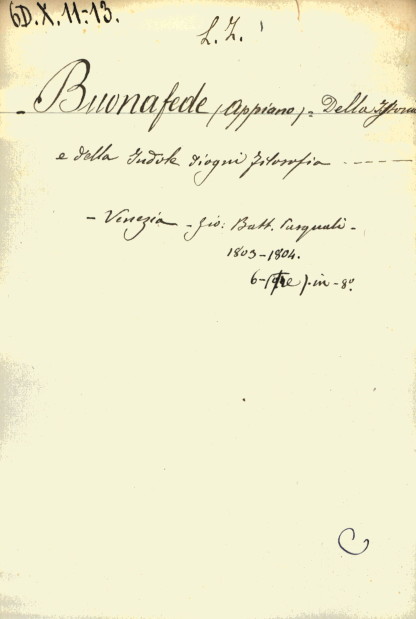 6D.X.11-13.
L.Z.
Buonafede (Appiano) = Della Istoria
e della Indole di ogni Filosofia
- Venezia - Gio: Batt. Pasquali -
1803-1804.
6-(tre). in - 8º.